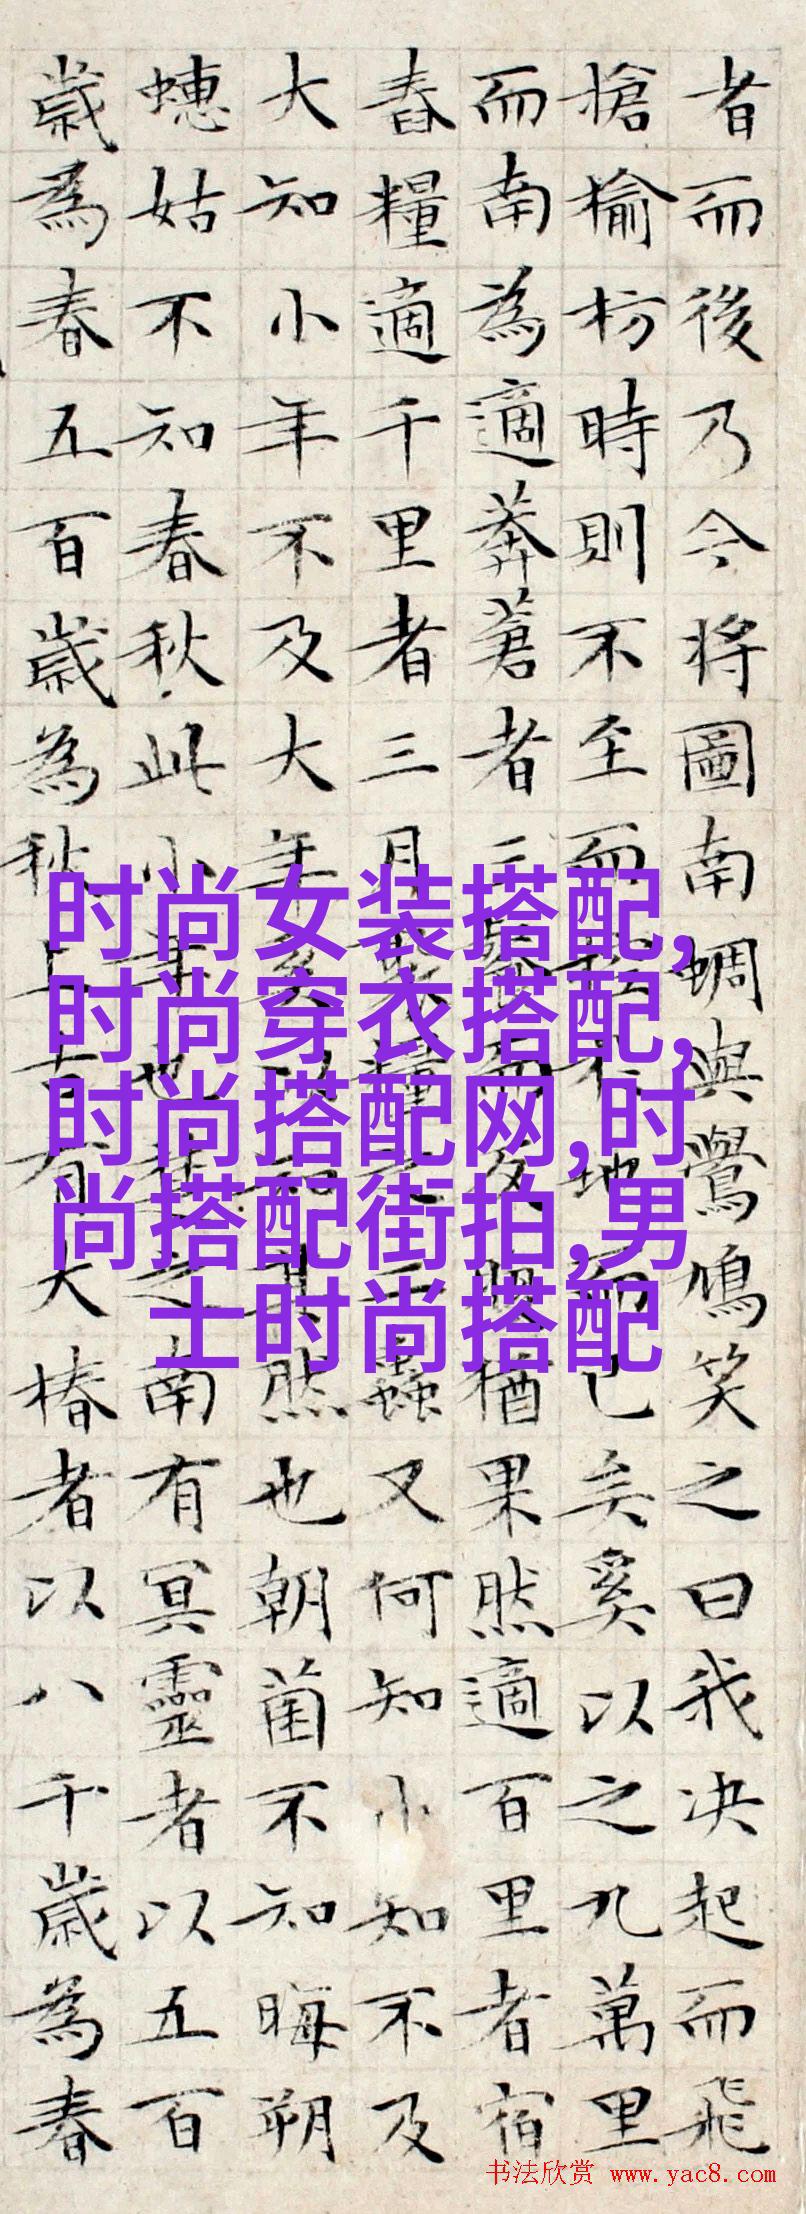 者而後乃今將圖南蜩與鷽鳩笑之曰我决起而飛
槍榆枋時則不至而控於地而已矣奚以之九萬里
而南為適莽蒼者三飡而反腹猶果然適百里者宿
舂糧適千里者三月聚糧之二蟲又何知小知不及
大知小年不及大年奚以知其然也朝菌不知晦朔
蟪姑不知春秋此小年也楚之南有冥靈者以五百
歲為春五百歲為秋上古有大椿者以八千歲為春
时尚女装搭配,
时尚穿衣搭配,
时尚搭配网,时
尚搭配街拍,男
士时尚搭配
书法欣赏 www.yac8.com